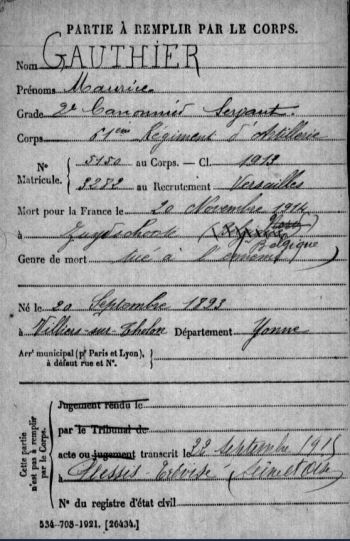 PARTIE À REMPLIR PAR LE CORPS.
Nom GAUTHIER
Prénoms Maurice
Grade 2e Canonnier Servant.
Corps 61ème Régiment d'Artillerie
N° Matricule. { 5150 au Corps. — Cl. 1913
3252 au Recrutement Versailles
Mort pour la France le 20 Novembre 1914
à Zuydschoote (Belgique)
Genre de mort tué à l'ennemi
Né le 20 Septembre 1893
à Villiers-sur-Tholon Département Yonne
Arrt municipal (pr Paris et Lyon), à défaut rue et N°. }
Cette partie n'est pas à remplir par le Corps.
Jugement rendu le
par le Tribunal de
acte ou jugement transcrit le 22 septembre 1915
à Plessis- (Seine et Oise)
N° du registre d'état civil
534-708-1921. [26434.]